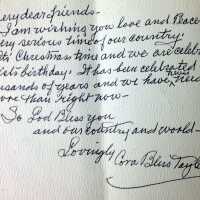 ery dear friends-
I am wishing you love and Peace
ery serious time of our country.
It's Christmas time and we are celeb
ist's birthday. It has been celebrated
usands of years and we have
ore than right now-
So God Bless you
and our country and world-
Lovingly
Cora Bliss Tayl